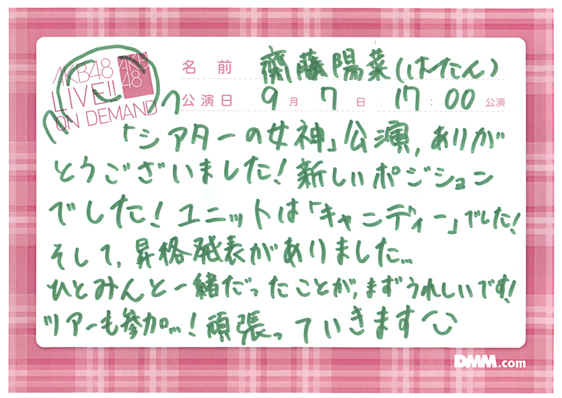 AKB48
LIVE!!
ON DEMAND
AKB
48
名前 齋藤陽菜(はたん)
公演日 9月7日 17:00公演
「シアターの女神」公演,ありが
とうございました!新しいポジション
でした!ユニットは「キャンディー」でした!
そして,昇格発表がありました…
ひとみんと一緒だったことが,まずうれしいです!
ツアーも参加…!頑張っていきます
DMM.com